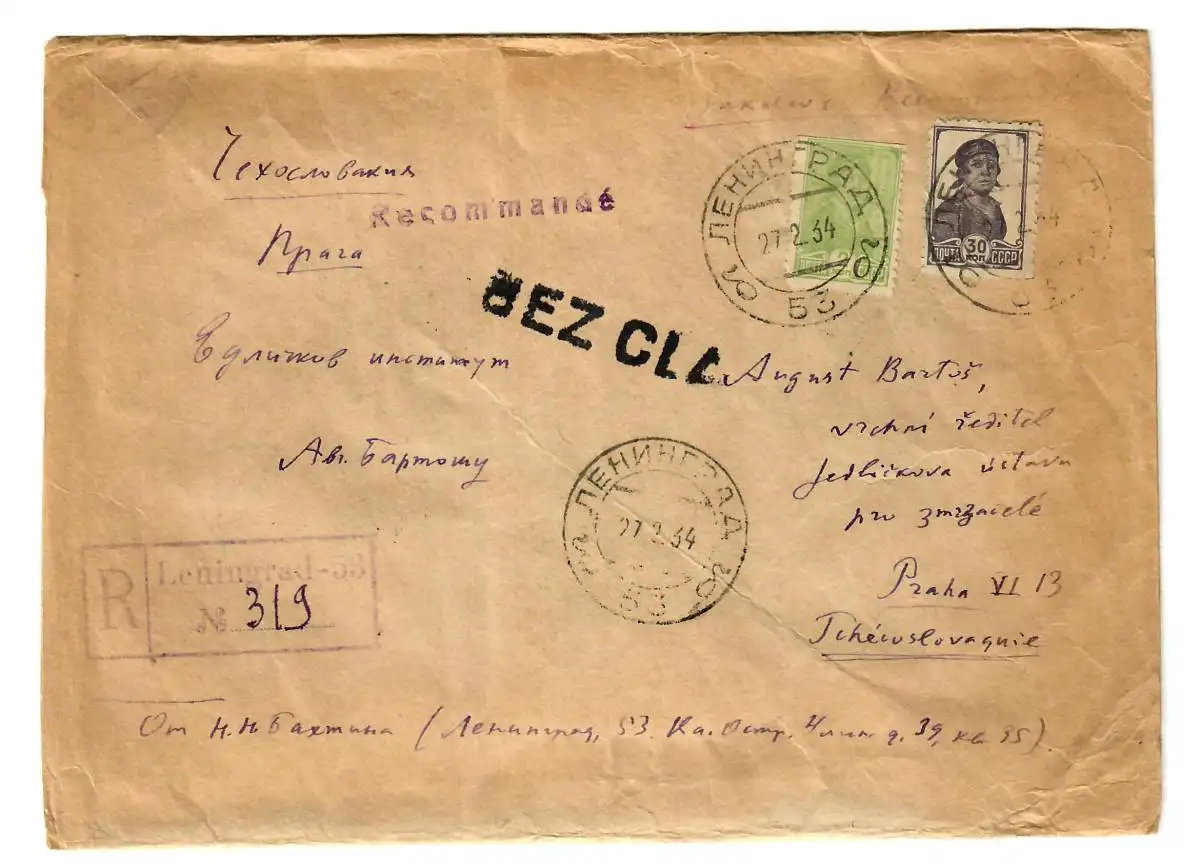 Чехословакия
Recommandé
Прага
ЛЕНИНГРАД
27.2.34
53
30
КОП
ПОЧТА СССР
BEZ CLA
Едличков институт
Авг. Бартошу
August Bartoš,
vrchní ředitel
Jedličkova ústavu
pro zmrzačelé
Praha VI 13
Tchécoslovaquie
ЛЕНИНГРАД
27 2 34
53
R
Leningrad-53
№ 319
От Н.Н. Бахтина (Ленинград, 53. Ва. Остр. 4 лин д. 39, кв 35).